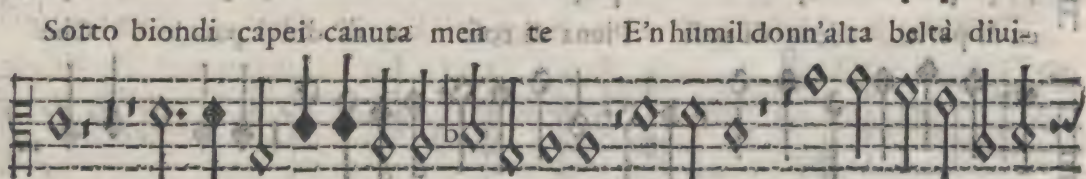 Sotto biondi capei canuta men te E'n humil donn'alta beltà diui-